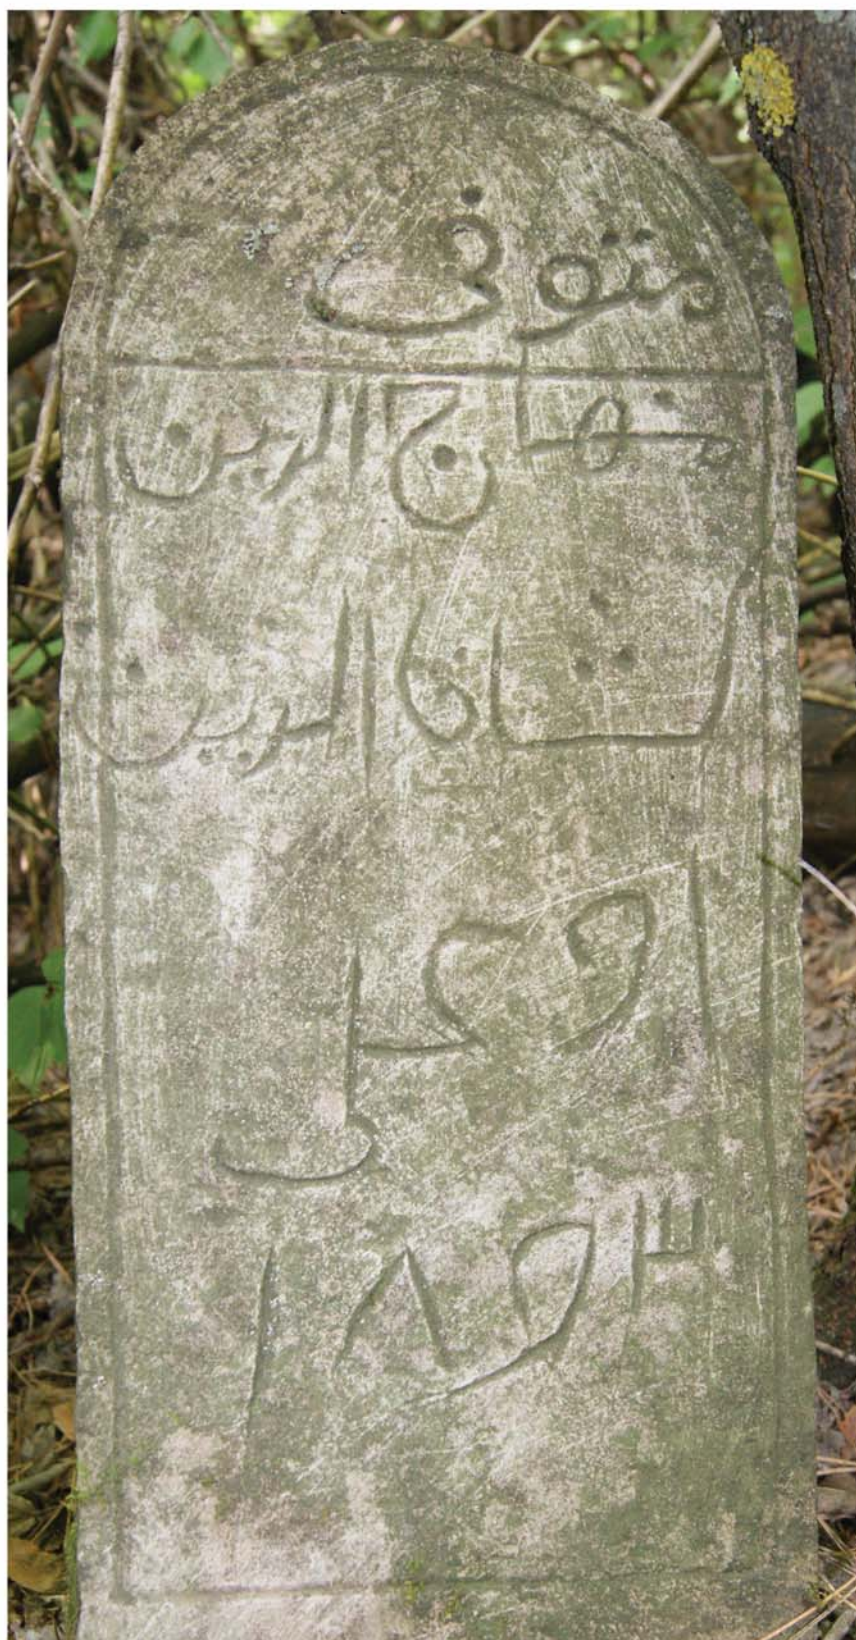 متوفى
منهاج الدين
الدين
اوعلى
١٨٩٣